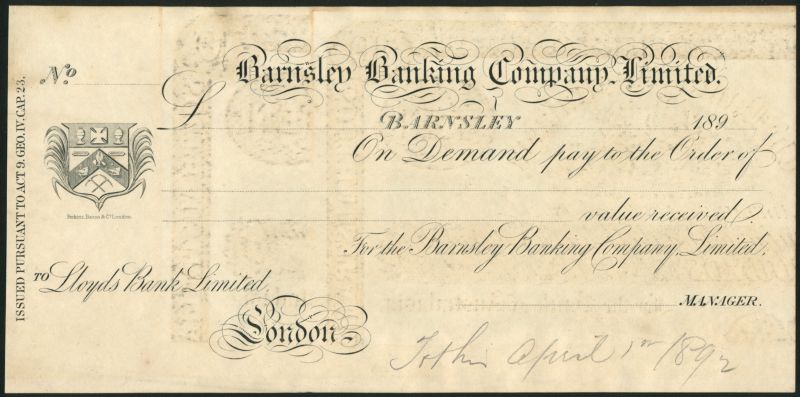 ISSUED PURSUANT TO ACT 9. GEO. IV. CAP. 23.
No
Barnsley Banking Company, Limited.
£
BARNSLEY 189
On Demand pay to the Order of
Perkins, Bacon & Co. London.
value received.
For the Barnsley Banking Company, Limited.
TO Lloyds Bank Limited.
MANAGER.
London
April 1st 1892